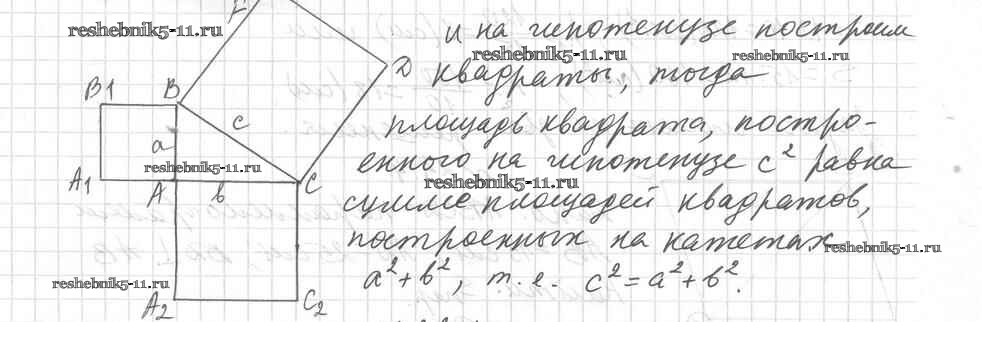 E
reshebnik5-11.ru
и на гипотенузе построим
reshebnik5-11.ru
reshebnik5-11.ru
D
квадраты, тогда
B1
B
c
площадь квадрата, постро-
a
reshebnik5-11.ru
енного на гипотенузе c² равна
A1
A
b
C
reshebnik5-11.ru
сумме площадей квадратов,
построенных на катетах
reshebnik5-11.ru
a²+b², т.е. c²=a²+b².
reshebnik5-11.ru
A2
C2